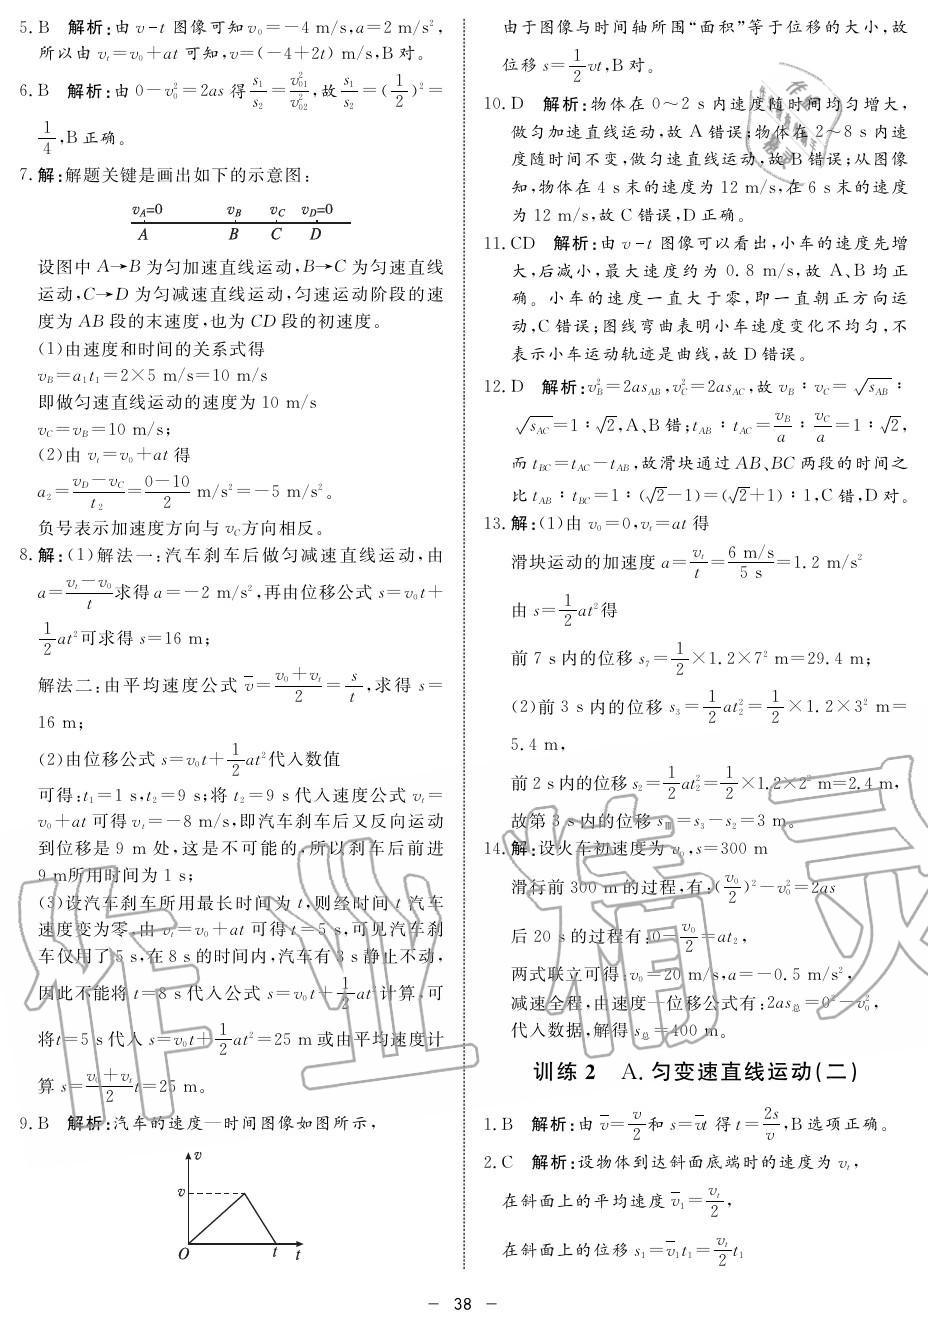 5. B 解析:由 v-t 图像可知 v₀=-4 m/s,a=2 m/s²,
所以由 vₜ=v₀+at 可知,v=(-4+2t) m/s,B 对。
6. B 解析:由 0-v₀²=2as 得 s₁/s₂=v₀₁²/v₀₂²,故 s₁/s₂=(1/2)²=
1/4,B 正确。
7. 解:解题关键是画出如下的示意图:
v_A=0 v_B v_C v_D=0
A B C D
设图中 A→B 为匀加速直线运动,B→C 为匀速直线
运动,C→D 为匀减速直线运动,匀速运动阶段的速
度为 AB 段的末速度,也为 CD 段的初速度。
(1)由速度和时间的关系式得
v_B=a₁t₁=2×5 m/s=10 m/s
即做匀速直线运动的速度为 10 m/s
v_C=v_B=10 m/s;
(2)由 vₜ=v₀+at 得
a₂=(v_D-v_C)/t₂=(0-10)/2 m/s²=-5 m/s²。
负号表示加速度方向与 v_C方向相反。
8. 解:(1)解法一:汽车刹车后做匀减速直线运动,由
a=(vₜ-v₀)/t求得 a=-2 m/s²,再由位移公式 s=v₀t+
1/2at²可求得 s=16 m;
解法二:由平均速度公式 v̄=(v₀+vₜ)/2=s/t,求得 s=
16 m;
(2)由位移公式 s=v₀t+1/2at²代入数值
可得:t₁=1 s,t₂=9 s;将 t₂=9 s 代入速度公式 vₜ=
v₀+at 可得 vₜ=-8 m/s,即汽车刹车后又反向运动
到位移是 9 m 处,这是不可能的,所以刹车后前进
9 m所用时间为 1 s;
(3)设汽车刹车所用最长时间为 t,则经时间 t 汽车
速度变为零,由 vₜ=v₀+at 可得 t=5 s,可见汽车刹
车仅用了 5 s,在 8 s 的时间内,汽车有 3 s 静止不动,
因此不能将 t=8 s 代入公式 s=v₀t+1/2at²计算,可
将t=5 s 代入 s=v₀t+1/2at²=25 m 或由平均速度计
算 s=(v₀+vₜ)/2t=25 m。
9. B 解析:汽车的速度—时间图像如图所示,
v
v
O t t
由于图像与时间轴所围“面积”等于位移的大小,故
位移 s=1/2vt,B 对。
10. D 解析:物体在 0～2 s 内速度随时间均匀增大,
做匀加速直线运动,故 A 错误;物体在 2～8 s 内速
度随时间不变,做匀速直线运动,故 B 错误;从图像
知,物体在 4 s 末的速度为 12 m/s,在 6 s 末的速度
为 12 m/s,故 C 错误,D 正确。
11. CD 解析:由 v-t 图像可以看出,小车的速度先增
大,后减小,最大速度约为 0.8 m/s,故 A、B 均正
确。小车的速度一直大于零,即一直朝正方向运
动,C 错误;图线弯曲表明小车速度变化不均匀,不
表示小车运动轨迹是曲线,故 D 错误。
12. D 解析:v_B²=2as_AB,v_C²=2as_AC,故 v_B∶v_C=√s_AB∶
√s_AC=1∶√2,A、B 错;t_AB∶t_AC=v_B/a∶v_C/a=1∶√2,
而 t_BC=t_AC-t_AB,故滑块通过 AB、BC 两段的时间之
比 t_AB∶t_BC=1∶(√2-1)=(√2+1)∶1,C 错,D 对。
13. 解:(1)由 v₀=0,vₜ=at 得
滑块运动的加速度 a=vₜ/t=6 m/s/5 s=1.2 m/s²
由 s=1/2at²得
前 7 s 内的位移 s₇=1/2×1.2×7² m=29.4 m;
(2)前 3 s 内的位移 s₃=1/2at₂²=1/2×1.2×3² m=
5.4 m,
前 2 s 内的位移 s₂=1/2at₂²=1/2×1.2×2² m=2.4 m,
故第 3 s 内的位移 s_Ⅲ=s₃-s₂=3 m。
14. 解:设火车初速度为 v₀,s=300 m
滑行前 300 m 的过程,有:(v₀/2)²-v₀²=2as
后 20 s 的过程有:0-v₀/2=at₂,
两式联立可得:v₀=20 m/s,a=-0.5 m/s²,
减速全程,由速度—位移公式有:2as总=0²-v₀²,
代入数据,解得 s总=400 m。
训练 2 A. 匀变速直线运动(二)
1. B 解析:由 v̄=v/2和 s=v̄t 得 t=2s/v,B 选项正确。
2. C 解析:设物体到达斜面底端时的速度为 vₜ,
在斜面上的平均速度 v̄₁=vₜ/2,
在斜面上的位移 s₁=v̄₁t₁=vₜ/2t₁
作业精灵
作业精灵
- 38 -